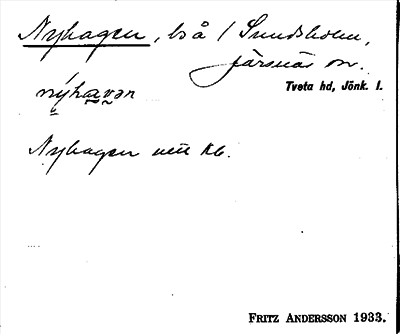 Nyhagen, bå / Sundsholm,
Järsnäs sn.
Tveta hd, Jönk. l.
nýhavən
Nyhagen Kb.
FRITZ ANDERSSON 1933.